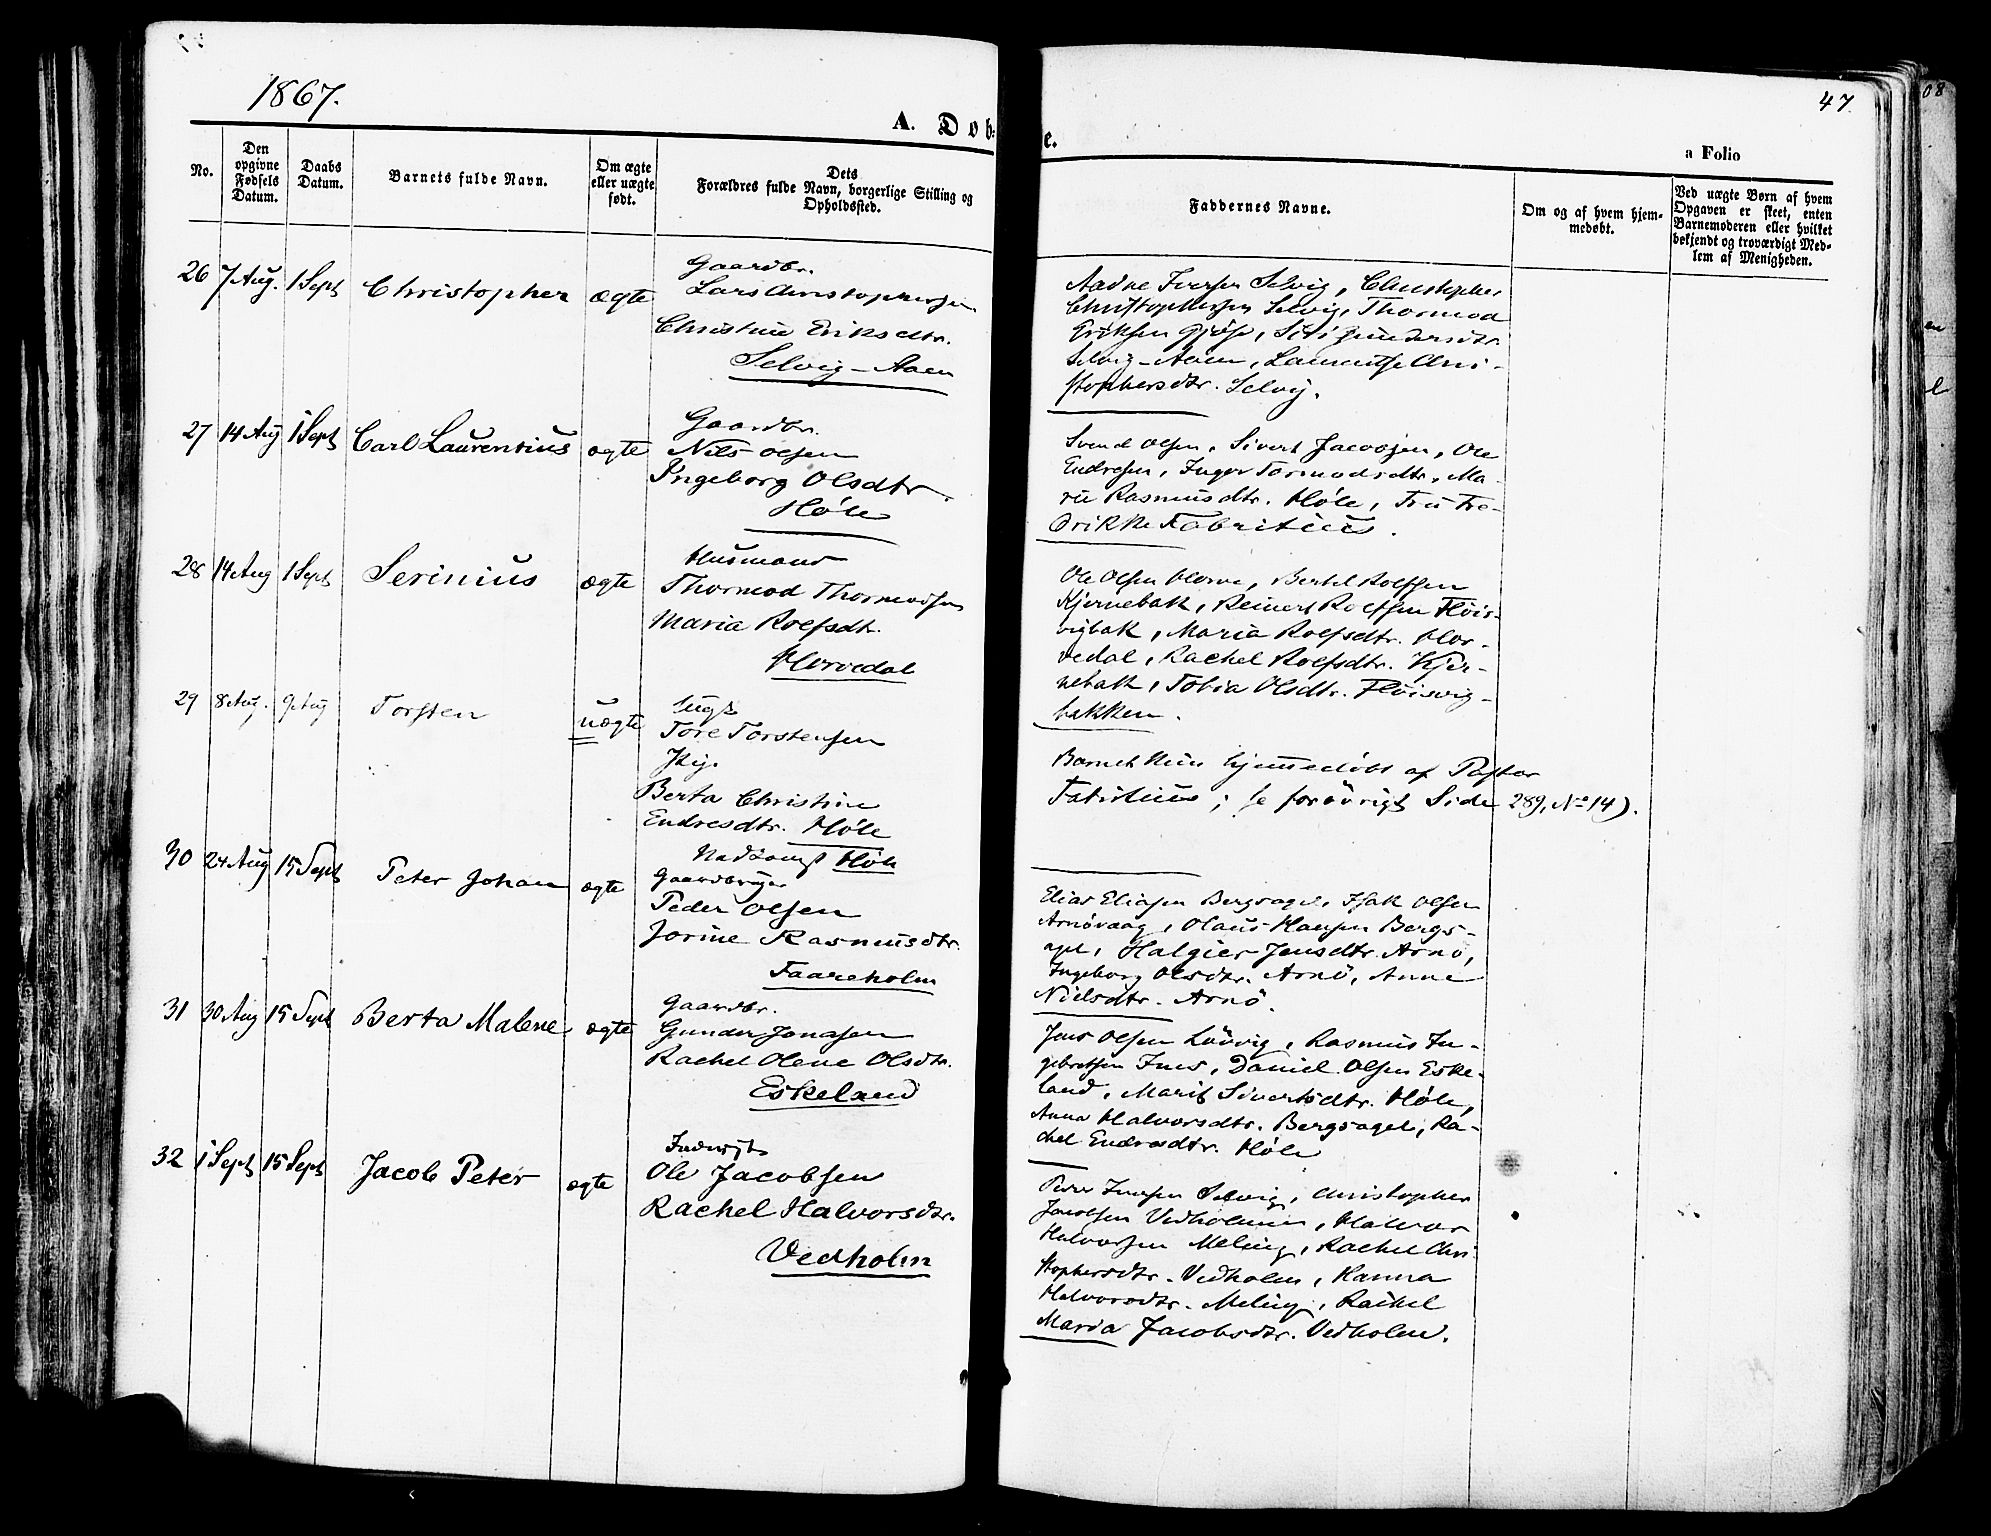 1867.
47.
08
A. Dobe.
a Folio
No.
Den opgivne Fødsels Datum.
Daabs Datum.
Barnets fulde Navn.
Om ægte eller uægte født.
Dets Forældres fulde Navn, borgerlige Stilling og Opholdssted.
Faddernes Navne.
Om og af hvem hjemmedøbt.
Ved uægte Børn af hvem Opgaven er skeet, enten Barnemoderen eller hvilket bekjendt og troværdigt Medlem af Menigheden.
26 7 Aug. 1 Sept Christopher ægte
Gaardbr.
Lars Christophersen
Christine Eriksdtr.
Selvig-Aaen
Aadne Iversen Selvig, Christopher
Christophersen Selvig, Thormod
Eriksen Gjøse, Siri Gundersdtr.
Selvig-Aaen, Lauritse Chri-
stophersdtr. Selvig.
27 14 Aug 1 Sept Carl Laurentius ægte
Gaardbr.
Nils Olsen
Ingeborg Olsdtr.
Høle
Svend Olsen, Sivert Jacobsen, Ole
Endresen, Inger Tormodsdtr., Ma-
rie Rasmusdtr. Høle, Fru Fre-
drikke Fabritius.
28 14 Aug 1 Sept Serinius ægte
Husmand
Thormod Thormodsen
Maria Rolfsdtr.
Horvedal
Ole Olsen Horve, Bertel Rolfsen
Kjernebak, Reinert Rolfsen Fløis-
vigbak, Maria Rolfsdtr. Hor-
vedal, Rachel Rolfsdtr. Kjer-
nebak, Tobia Olsdtr. Fløisvig-
bakken.
29 8 Aug. 9 Aug Torsten uægte
Ungk
Tore Torstensen
Pig.
Berta Christine
Endresdtr. Høle
Barnet kun hjemmedøbt af Pastor
Fabritius; se forøvrigt Side 289, No 14).
30 24 Aug 15 Sept Peter Johan ægte
Høle
Gaardbruger
Peder Olsen
Jorine Rasmusdtr.
Taareholm
Elias Eliasen Bergsagel, Isak Olsen
Arnøvaag, Olaus Hansen Bergs-
agel, Halgier Jensdtr. Arnø,
Ingeborg Olsdtr. Arnø, Anne
Nielsdtr. Arnø.
31 30 Aug 15 Sept Berta Malene ægte
Gaardbr.
Gunder Jonasen
Rachel Olene Olsdtr.
Eskeland
Jens Olsen Løvvig, Rasmus In-
gebretsen Ims, Daniel Olsen Eske-
land, Marit Sivertsdtr. Høle,
Anna Halvorsdtr. Bergsagel, Ra-
chel Endresdtr. Høle
32 1 Sept 15 Sept Jacob Peter ægte
Inderst
Ole Jacobsen
Rachel Halvorsdtr.
Vedholm
Peder Iversen Selvig, Christopher
Jacobsen Vedholmen, Halvor
Halvorsen Meling, Rachel Chri
stophersdtr. Vedholm, Hanna
Halvorsdtr. Meling, Rachel
Maria Jacobsdtr. Vedholm.